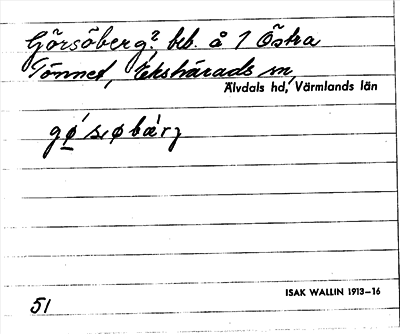 Görsöberg? beb. å 1 Östra
Tönnet, Ekshärads sn,
Älvdals hd, Värmlands län
gǿsøbærj
ISAK WALLIN 1913–16
51